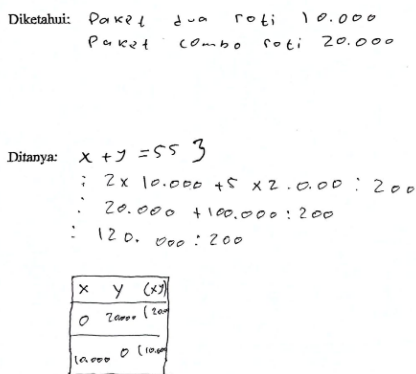 Diketahui: Paket dua roti 10.000
Paket combo roti 20.000
Ditanya: x + y = 55 3
: 2 x 10.000 + 5 x 2.0.00 : 200
: 20.000 + 100.000 : 200
: 120.000 : 200
x y (xy)
0 20000 (200
10.000 0 (10.000